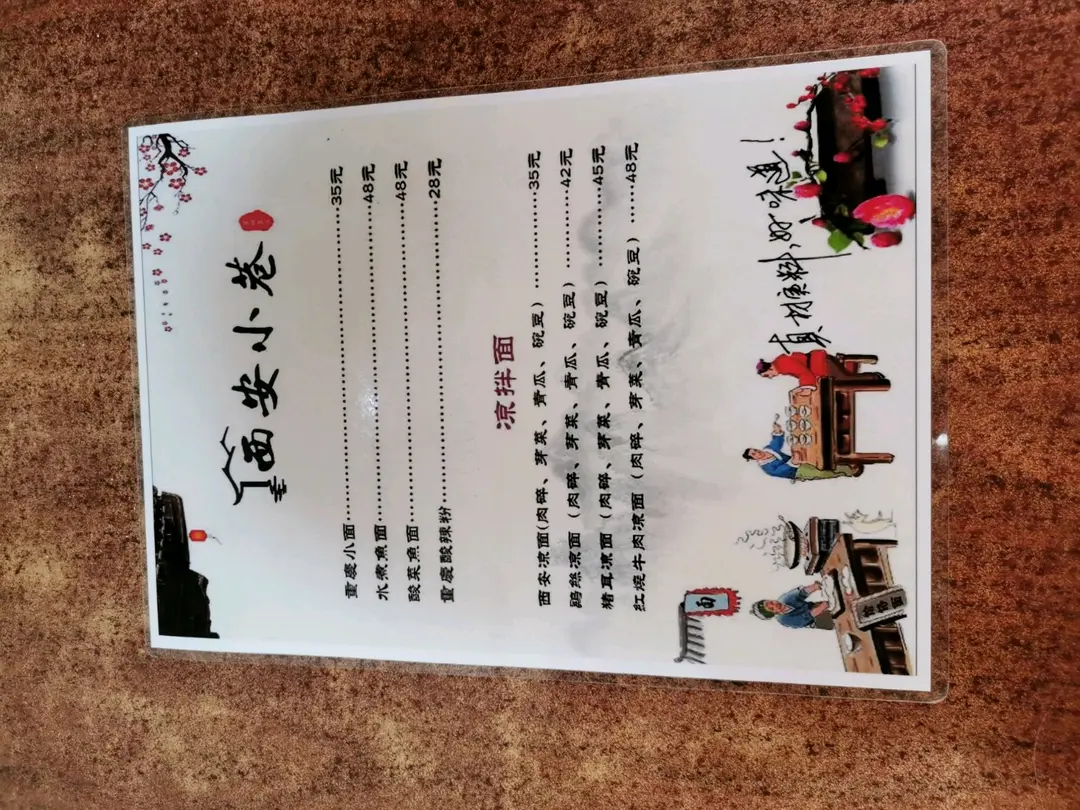 西安小巷
重慶小面……………………………35元
水煮魚面……………………………48元
酸菜魚面……………………………48元
重慶酸辣粉…………………………28元
凉拌面
西安凉面(肉碎、芽菜、青瓜、碗豆)…………35元
鷄絲凉面(肉碎、芽菜、青瓜、碗豆)…………42元
猪耳凉面(肉碎、芽菜、青瓜、碗豆)…………45元
紅燒牛肉凉面(肉碎、芽菜、青瓜、碗豆)……48元
真材實料,好味道!
面